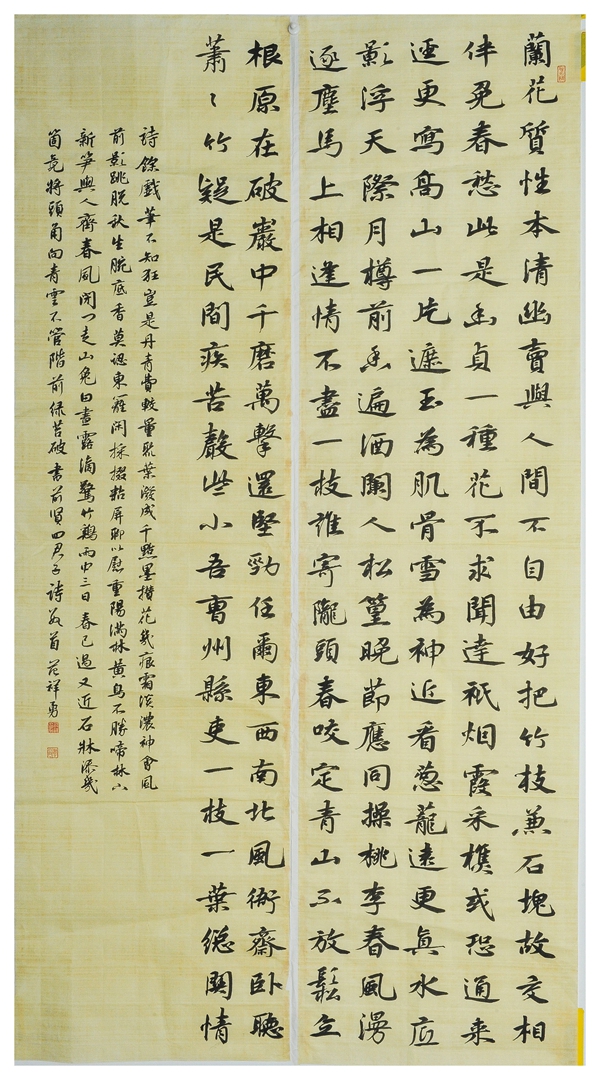 蘭花質性本清幽賣與人間不自由好把竹枝兼石塊故交相
伴免春愁此是幽貞一種花不求聞達秖烟霞采樵或恐通来
逕更寫高山一片遮玉為肌骨雪為神近看葱蘢遠更真水应
影浮天際月樽前香遍酒闌人松篁晚節應同操桃李春風漫
逐塵馬上相逢情不盡一枝誰寄隴頭春咬定青山不放鬆立
根原在破巖中千磨萬擊還堅勁任爾東西南北風衙齋卧聽
蕭〻竹疑是民間疾苦聲些小吾曹州縣吏一枝一葉總関情
詩餘戲筆不知狂豈是丹青費較量聚葉潑成千點墨攢花幾痕霜淡濃神會風
前影跳脱秋生腕底香莫認東籬閑採掇粘屏聊以慰重陽滿林黄鸟不勝啼林下
新笋與人齊春風閉門走山兔白晝露滴驚竹鷄雨中三日春已過又近石牀添幾
箇竟将頭角向青雲不管階前绿苔破書前賢四君子詩数首范祥勇